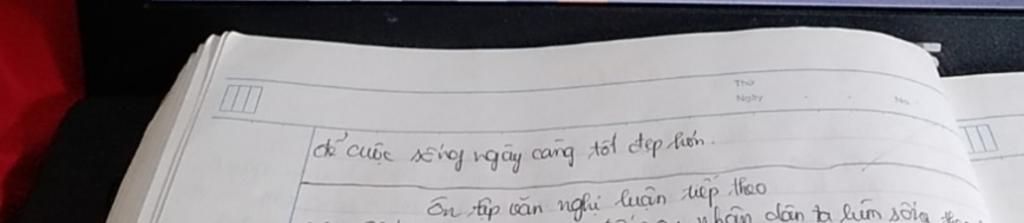 Thứ
Ngày . . No.
để cuộc sống ngày càng tốt đẹp hơn.
Ôn tập văn nghị luận tiếp theo
nhân dân ta luôn sống